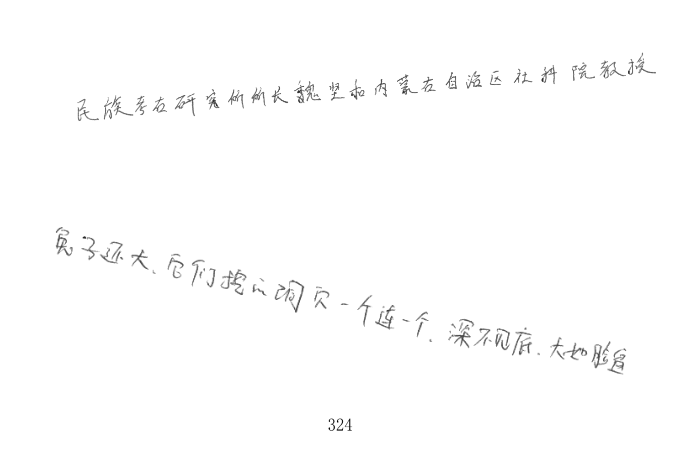 民族考古研究所所长魏坚和内蒙古自治区社科院教授
兔子还大、它们挖的洞穴一个连一个、深不见底、大如脸盆
324